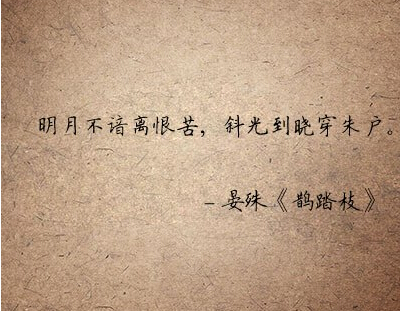 明月不谙离恨苦，斜光到晓穿朱户。
– 晏殊《鹊踏枝》